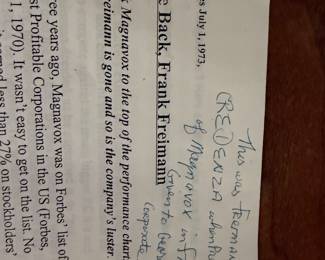 This was Freiman
CREDENZA when
of Magnavox in
Given to
Corporate
es July 1, 1973,
e Back, Frank Freimann
k Magnavox to the top of the performance chart
eimann is gone and so is the company's luster.
ree years ago, Magnavox was on Forbes' list of
st Profitable Corporations in the US (Forbes,
1, 1970). It wasn't easy to get on the list. No
earned less than 27% on stockholders'